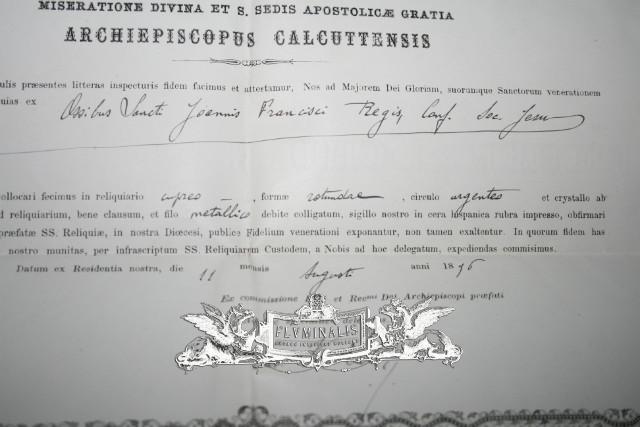 MISERATIONE DIVINA ET S. SEDIS APOSTOLICÆ GRATIA
ARCHIEPISCOPUS CALCUTTENSIS
ulis præsentes litteras inspecturis fidem facimus et attestamur, Nos ad Majorem Dei Gloriam, suorumque Sanctorum venerationem
uias ex Ossibus Sancti Joannis Francisci Regis, Conf. Soc. Jesu
ollocari fecimus in reliquiario cupreo —, formæ rotundae, circulo argenteo et crystallo ab
d reliquiarium, bene clausum, et filo metallico debite colligatum, sigillo nostro in cera hispanica rubra impresso, obfirmari
præfatæ SS. Reliquiæ, in nostra Diœcesi, publicæ Fidelium venerationi exponantur, non tamen exaltentur. In quorum fidem has
nostro munitas, per infrascriptum SS. Reliquiarem Custodem, a Nobis ad hoc delegatum, expediendas commisimus.
Datum ex Residentia nostra, die 11 mensis Augusti anni 1896
Ex commissione et Revmi Dni Archiepiscopi præfati
FLVMINALIS